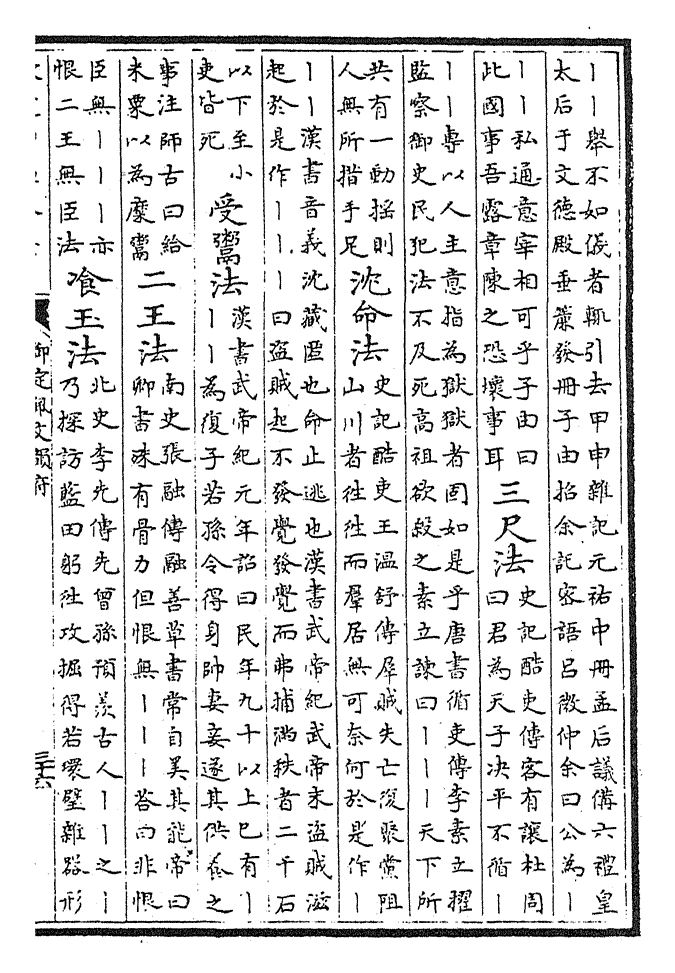 丨丨舉不如儀者輒引去甲申雜記元祐中冊孟后議備六禮皇
太后于文德殿垂簾發冊子由招余託密語呂微仲余曰公為丨
丨丨私通意宰相可乎子由曰
此國事吾露章陳之恐壞事耳
三尺法
史記酷吏傳客有讓杜周
曰君為天子決平不循丨
丨丨專以人主意指為獄獄者固如是乎唐書循吏傳李素立擢
監察御史民犯法不及死高祖欲殺之素立諫曰丨丨丨天下所
共有一動搖則
人無所措手足
沈命法
史記酷吏王温舒傳羣賊失亡復聚黨阻
山川者往往而羣居無可奈何於是作丨
丨丨漢書音義沈藏匿也命止逃也漢書武帝紀武帝末盜賊滋
起於是作丨丨丨曰盜賊起不發覺發覺而弗捕滿秩者二千石
以下至小
吏皆死
受鬻法
漢書武帝紀元年詔曰民年九十以上已有丨
丨丨為復子若孫令得身帥妻妾遂其供養之
事注師古曰給
米粟以為糜鬻
二王法
南史張融傳融善草書常自美其能帝曰
卿書殊有骨力但恨無丨丨丨荅曰非恨
臣無丨丨丨亦
恨二王無臣法
飡玉法
北史李先傳先曾孫預羨古人丨丨之丨
乃採訪藍田躬往攻掘得若環璧雜器形
御定佩文韻府